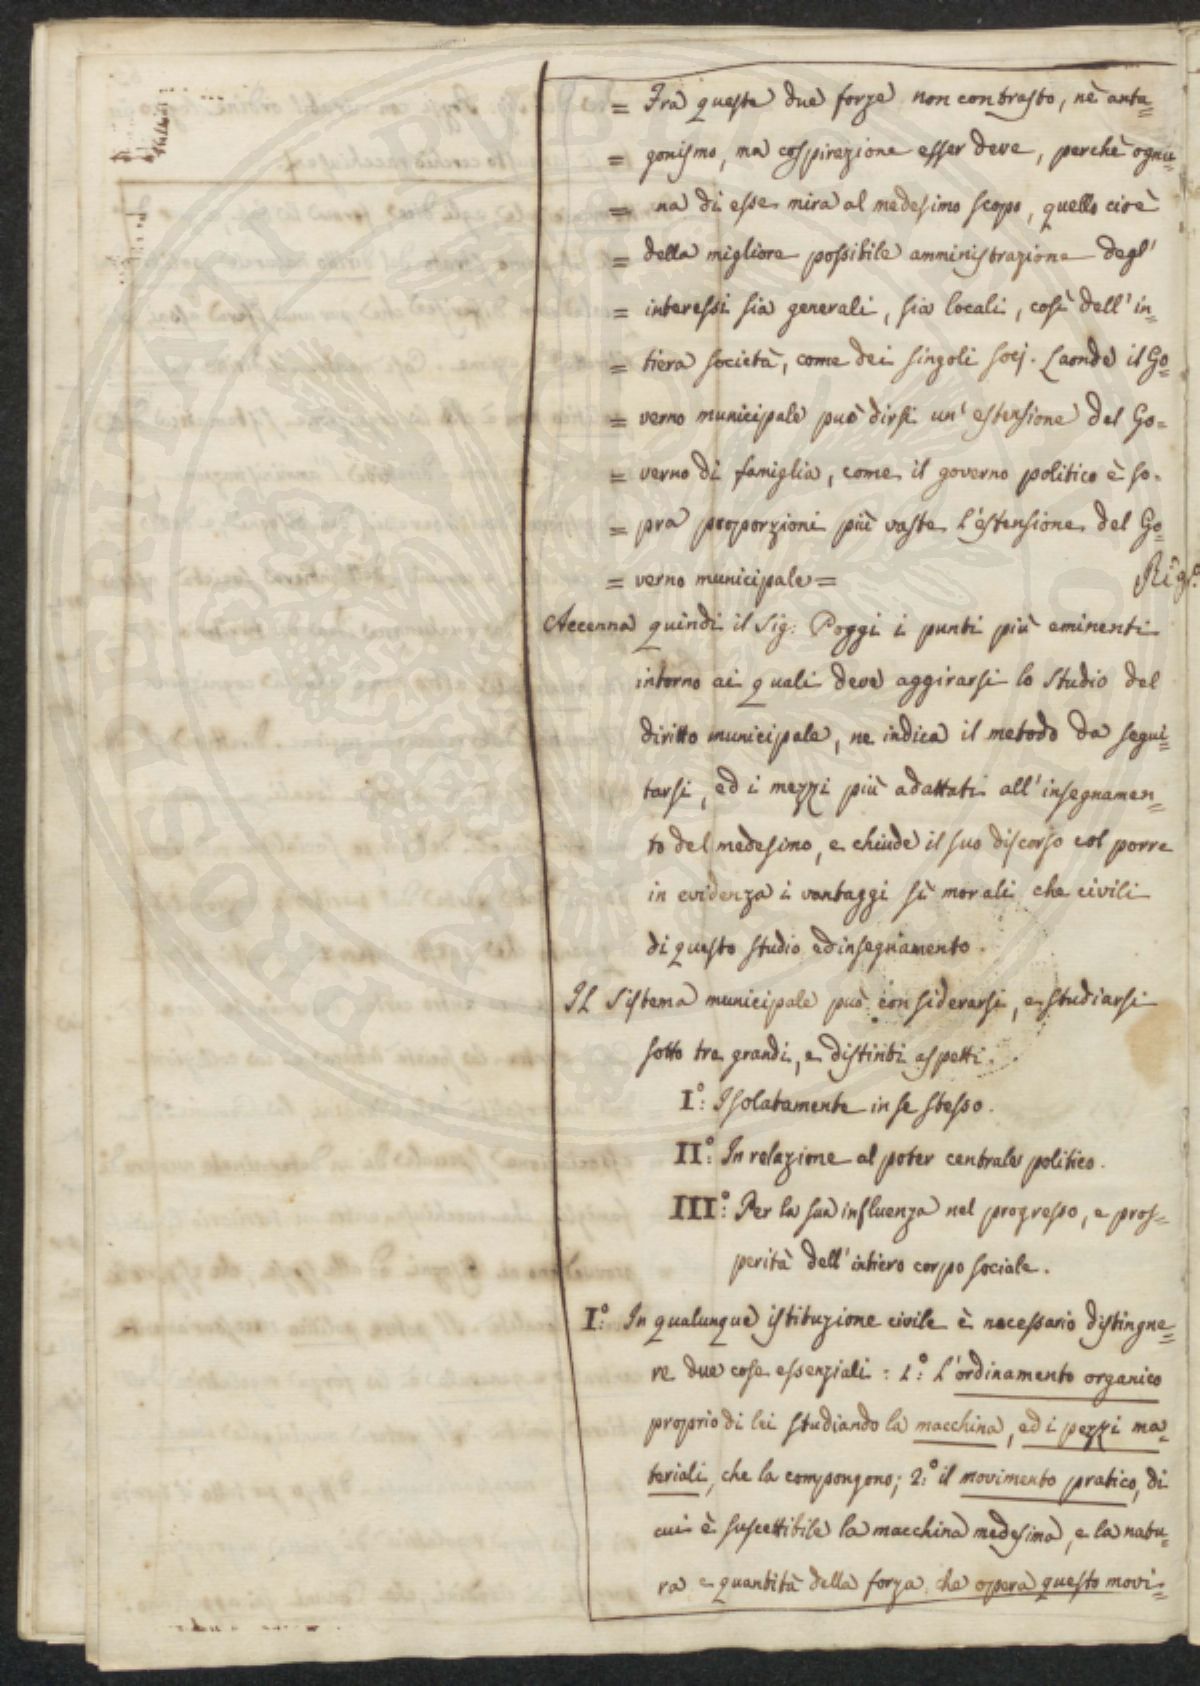 = Fra queste due forze non contrasto, nè anta=
= gonismo, ma cospirazione esser deve, perchè ognu=
= na di esse mira al medesimo scopo, quello cioè
= della migliore possibile amministrazione degl'
= interessi sia generali, sia locali, così dell'in=
= tiera società, come dei singoli socj. Laonde il Go=
= verno municipale può dirsi un'estensione del Go=
= verno di famiglia, come il governo politico è so=
= pra proporzioni più vaste l'estensione del Go=
= verno municipale =
Accenna quindi il Sig: Poggi i punti più eminenti
intorno ai quali deve aggirarsi lo studio del
diritto municipale, ne indica il metodo da segui=
tarsi, ed i mezzi più adattati all'insegnamen=
to del medesimo, e chiude il suo discorso col porre
in evidenza i vantaggi sì morali che civili
di questo studio ed insegnamento.
Il Sistema municipale può considerarsi, e studiarsi
sotto tre grandi, e distinti aspetti.
I°: Isolatamente in se stesso.
II°: In relazione al poter centrale politico.
III°: Per la sua influenza nel progresso, e pros=
perità dell'intiero corpo sociale.
I°: In qualunque istituzione civile è necessario distingue=
re due cose essenziali: 1°: L'ordinamento organico
proprio di lei studiando la macchina, ed i pezzi ma=
teriali, che la compongono; 2°: il movimento pratico, di
cui è suscettibile la macchina medesima, e la natu=
ra e quantità della forza che opera questo movi=
PROSPERITATI PUBLICAE